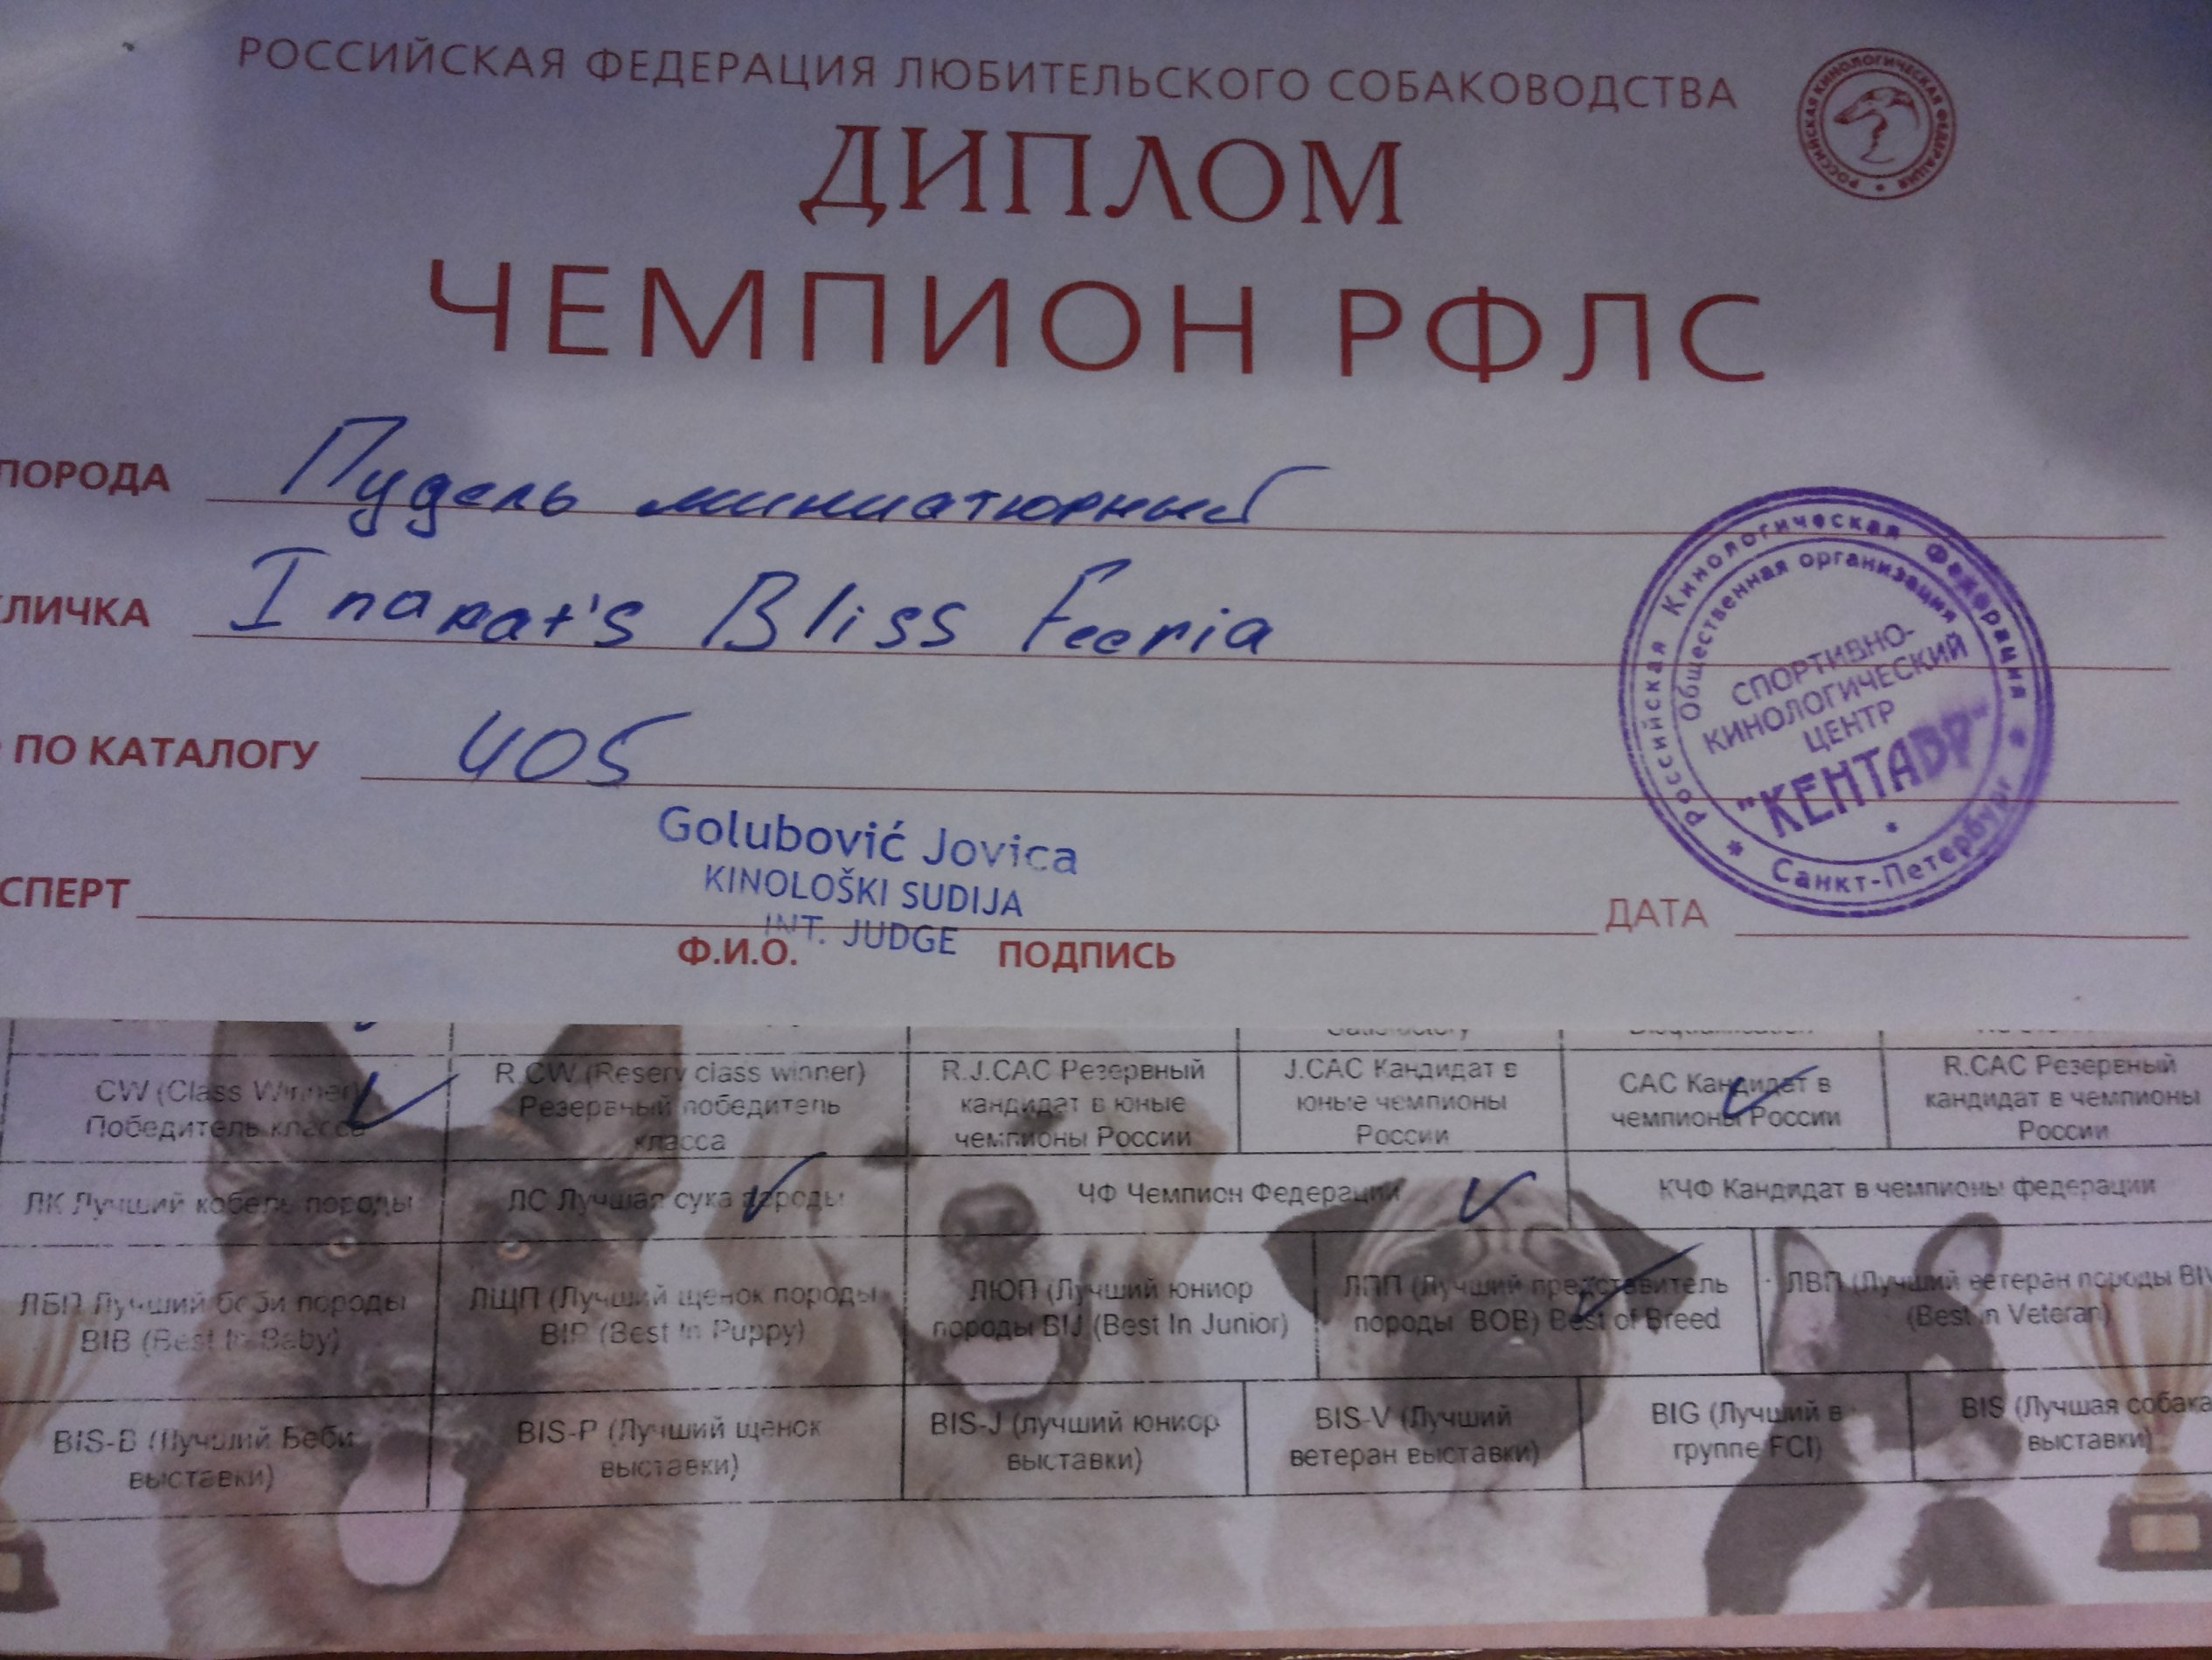 РОССИЙСКАЯ ФЕДЕРАЦИЯ ЛЮБИТЕЛЬСКОГО СОБАКОВОДСТВА
РОССИЙСКАЯ КИНОЛОГИЧЕСКАЯ ФЕДЕРАЦИЯ
ДИПЛОМ
ЧЕМПИОН РФЛС
ПОРОДА Пудель миниатюрный
ЛИЧКА Inarat's Bliss Feeria
ПО КАТАЛОГУ 405
Российская Кинологическая Федерация
Санкт-Петербург
Общественная организация
СПОРТИВНО-
КИНОЛОГИЧЕСКИЙ
ЦЕНТР
"КЕНТАВР"
Golubović Jovica
KINOLOŠKI SUDIJA
INT. JUDGE
СПЕРТ
ДАТА
Ф.И.О. ПОДПИСЬ
CW (Class Winner) Победитель класса
R.CW (Reserv class winner) Резервный победитель класса
R.J.CAC Резервный кандидат в юные чемпионы России
J.CAC Кандидат в юные чемпионы России
CAC Кандидат в чемпионы России
R.CAC Резервный кандидат в чемпионы России
ЛК Лучший кобель породы
ЛС Лучшая сука породы
ЧФ Чемпион Федерации
КЧФ Кандидат в чемпионы федерации
ЛБП Лучший беби породы BIB (Best In Baby)
ЛЩП (Лучший щенок породы BIP (Best In Puppy)
ЛЮП (Лучший юниор породы BIJ (Best In Junior)
ЛПП (Лучший представитель породы BOB) Best of Breed
ЛВП (Лучший ветеран породы BIV (Best in Veteran)
BIS-B (Лучший Беби выставки)
BIS-P (Лучший щенок выставки)
BIS-J (лучший юниор выставки)
BIS-V (Лучший ветеран выставки)
BIG (Лучший в группе FCI)
BIS (Лучшая собака выставки)